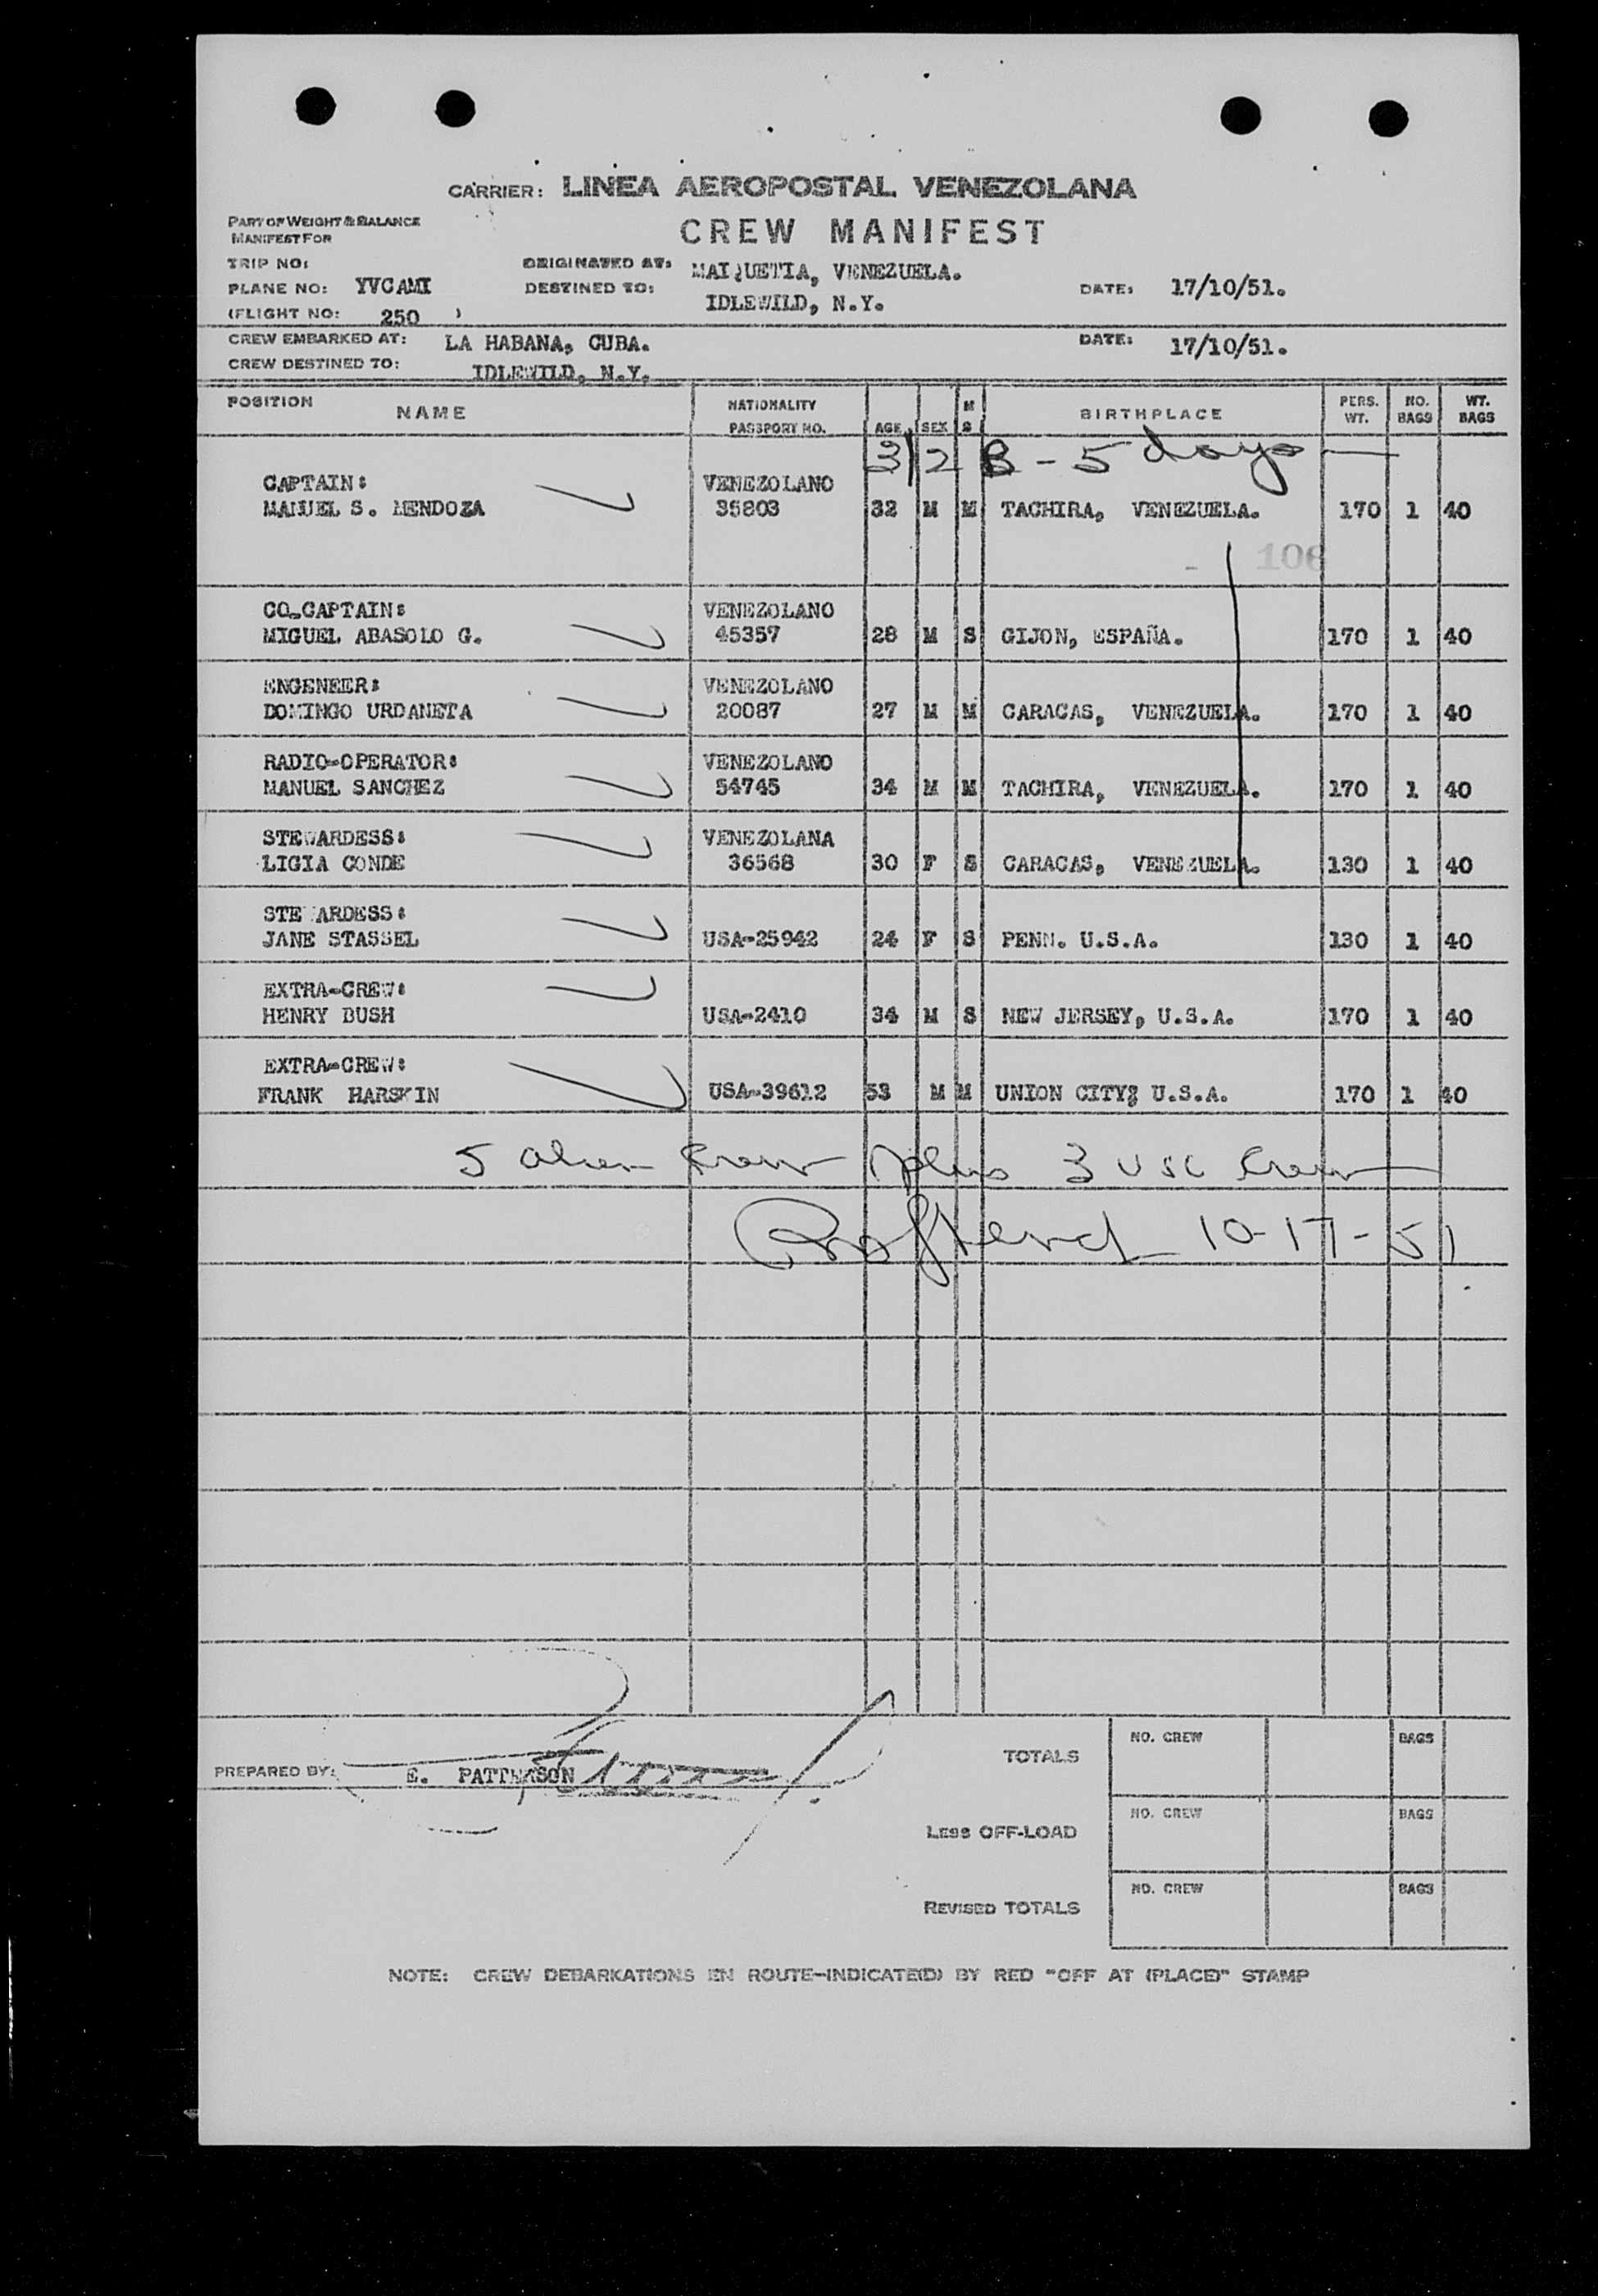 CARRIER: LINEA AEROPOSTAL VENEZOLANA
PART OF WEIGHT & BALANCE
MANIFEST FOR
CREW MANIFEST
TRIP NO:
ORIGINATED AT: MAIQUETIA, VENEZUELA.
PLANE NO: YVCAMI
DESTINED TO: IDLEWILD, N.Y.
DATE: 17/10/51.
(FLIGHT NO: 250 )
CREW EMBARKED AT: LA HABANA, CUBA.
DATE: 17/10/51.
CREW DESTINED TO: IDLEWILD, N.Y.
POSITION NAME NATIONALITY PASSPORT NO. AGE SEX M S BIRTHPLACE PERS. WT. NO. BAGS WT. BAGS
3/2 B - 5 days
CAPTAIN: VENEZOLANO
MANUEL S. MENDOZA 35803 32 M M TACHIRA, VENEZUELA. 170 1 40
106
CO-CAPTAIN: VENEZOLANO
MIGUEL ABASOLO G. 45357 28 M S GIJON, ESPAÑA. 170 1 40
ENGENEER: VENEZOLANO
DOMINGO URDANETA 20087 27 M M CARACAS, VENEZUELA. 170 1 40
RADIO-OPERATOR: VENEZOLANO
MANUEL SANCHEZ 54745 34 M M TACHIRA, VENEZUELA. 170 1 40
STEWARDESS: VENEZOLANA
LIGIA CONDE 36568 30 F S CARACAS, VENEZUELA. 130 1 40
STEWARDESS:
JANE STASSEL USA-25942 24 F S PENN. U.S.A. 130 1 40
EXTRA-CREW:
HENRY BUSH USA-2410 34 M S NEW JERSEY, U.S.A. 170 1 40
EXTRA-CREW:
FRANK HARSKIN USA-39612 53 M M UNION CITY, U.S.A. 170 1 40
5 alien Crew plus 3 USC Crew
10-17-51
PREPARED BY: E. PATTERSON
TOTALS NO. CREW BAGS
LESS OFF-LOAD NO. CREW BAGS
REVISED TOTALS NO. CREW BAGS
NOTE: CREW DEBARKATIONS EN ROUTE-INDICATE(D) BY RED "OFF AT (PLACE)" STAMP